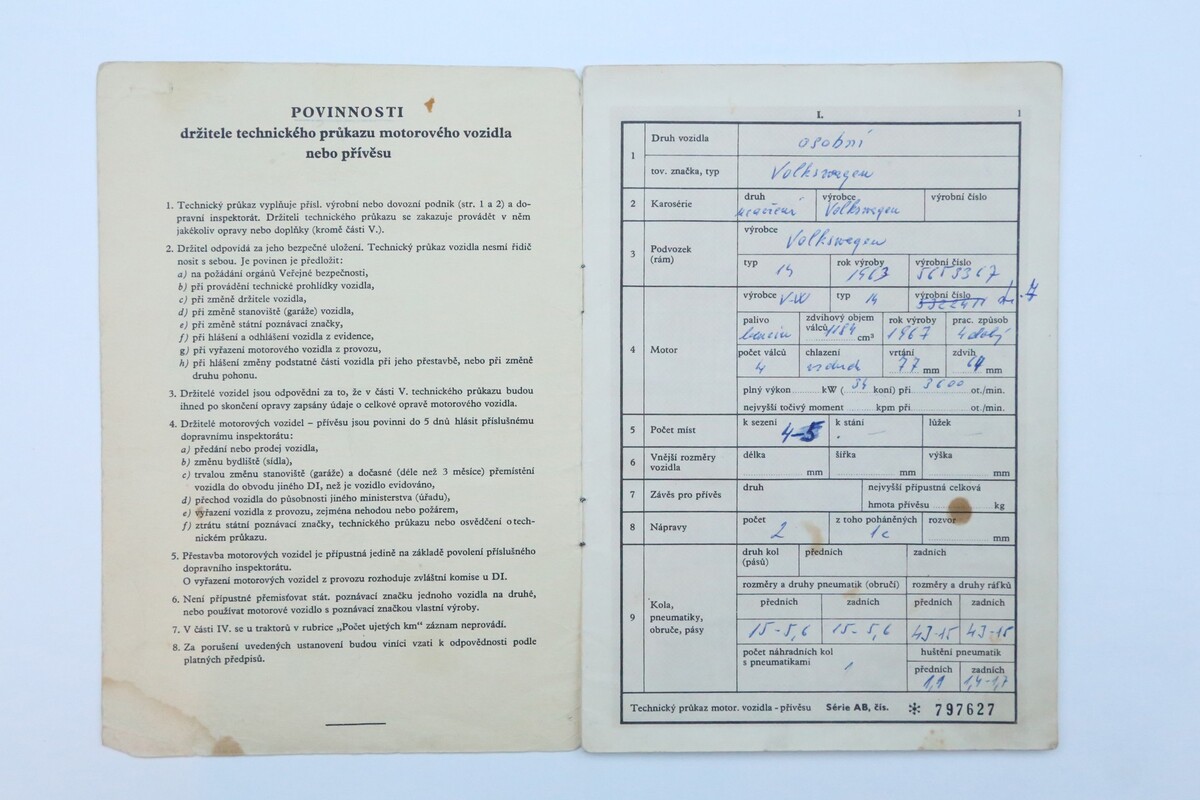 POVINNOSTI
držitele technického průkazu motorového vozidla
nebo přívěsu
1. Technický průkaz vyplňuje přísl. výrobní nebo dovozní podnik (str. 1 a 2) a do-
pravní inspektorát. Držiteli technického průkazu se zakazuje provádět v něm
jakékoliv opravy nebo doplňky (kromě části V.).
2. Držitel odpovídá za jeho bezpečné uložení. Technický průkaz vozidla nesmí řidič
nosit s sebou. Je povinen je předložit:
a) na požádání orgánů Veřejné bezpečnosti,
b) při provádění technické prohlídky vozidla,
c) při změně držitele vozidla,
d) při změně stanoviště (garáže) vozidla,
e) při změně státní poznávací značky,
f) při hlášení a odhlášení vozidla z evidence,
g) při vyřazení motorového vozidla z provozu,
h) při hlášení změny podstatné části vozidla při jeho přestavbě, nebo při změně
druhu pohonu.
3. Držitelé vozidel jsou odpovědni za to, že v části V. technického průkazu budou
ihned po skončení opravy zapsány údaje o celkové opravě motorového vozidla.
4. Držitelé motorových vozidel – přívěsu jsou povinni do 5 dnů hlásit příslušnému
dopravnímu inspektorátu:
a) předání nebo prodej vozidla,
b) změnu bydliště (sídla),
c) trvalou změnu stanoviště (garáže) a dočasné (déle než 3 měsíce) přemístění
vozidla do obvodu jiného DI, než je vozidlo evidováno,
d) přechod vozidla do působnosti jiného ministerstva (úřadu),
e) vyřazení vozidla z provozu, zejména nehodou nebo požárem,
f) ztrátu státní poznávací značky, technického průkazu nebo osvědčení o tech-
nickém průkazu.
5. Přestavba motorových vozidel je přípustná jedině na základě povolení příslušného
dopravního inspektorátu.
O vyřazení motorových vozidel z provozu rozhoduje zvláštní komise u DI.
6. Není přípustné přemisťovat stát. poznávací značku jednoho vozidla na druhé,
nebo používat motorové vozidlo s poznávací značkou vlastní výroby.
7. V části IV. se u traktorů v rubrice „Počet ujetých km“ záznam neprovádí.
8. Za porušení uvedených ustanovení budou viníci vzati k odpovědnosti podle
platných předpisů.
I. 1
1 Druh vozidla osobní
tov. značka, typ Volkswagen
2 Karosérie druh výrobce Volkswagen výrobní číslo
3 Podvozek (rám) výrobce Volkswagen
typ 14 rok výroby 1963 výrobní číslo
4 Motor výrobce VW typ 14 výrobní číslo
palivo benzin zdvihový objem válců 1184 cm³ rok výroby 1967 prac. způsob 4dobý
počet válců 4 chlazení vzduch vrtání 77 mm zdvih 64 mm
plný výkon kW ( 34 koní) při 3600 ot./min.
nejvyšší točivý moment kpm při ot./min.
5 Počet míst k sezení 4-5 k stání – lůžek –
6 Vnější rozměry vozidla délka mm šířka mm výška mm
7 Závěs pro přívěs druh nejvyšší přípustná celková
hmota přívěsu kg
8 Nápravy počet 2 z toho poháněných rozvor mm
9 Kola, pneumatiky, obruče, pásy
druh kol (pásů) předních zadních
rozměry a druhy pneumatik (obručí) rozměry a druhy ráfků
předních zadních předních zadních
15-5,6 15-5,6 4J-15 4J-15
počet náhradních kol s pneumatikami 1 huštění pneumatik
předních zadních
1,1 1,4-1,7
Technický průkaz motor. vozidla - přívěsu Série AB, čís. ✻ 797627